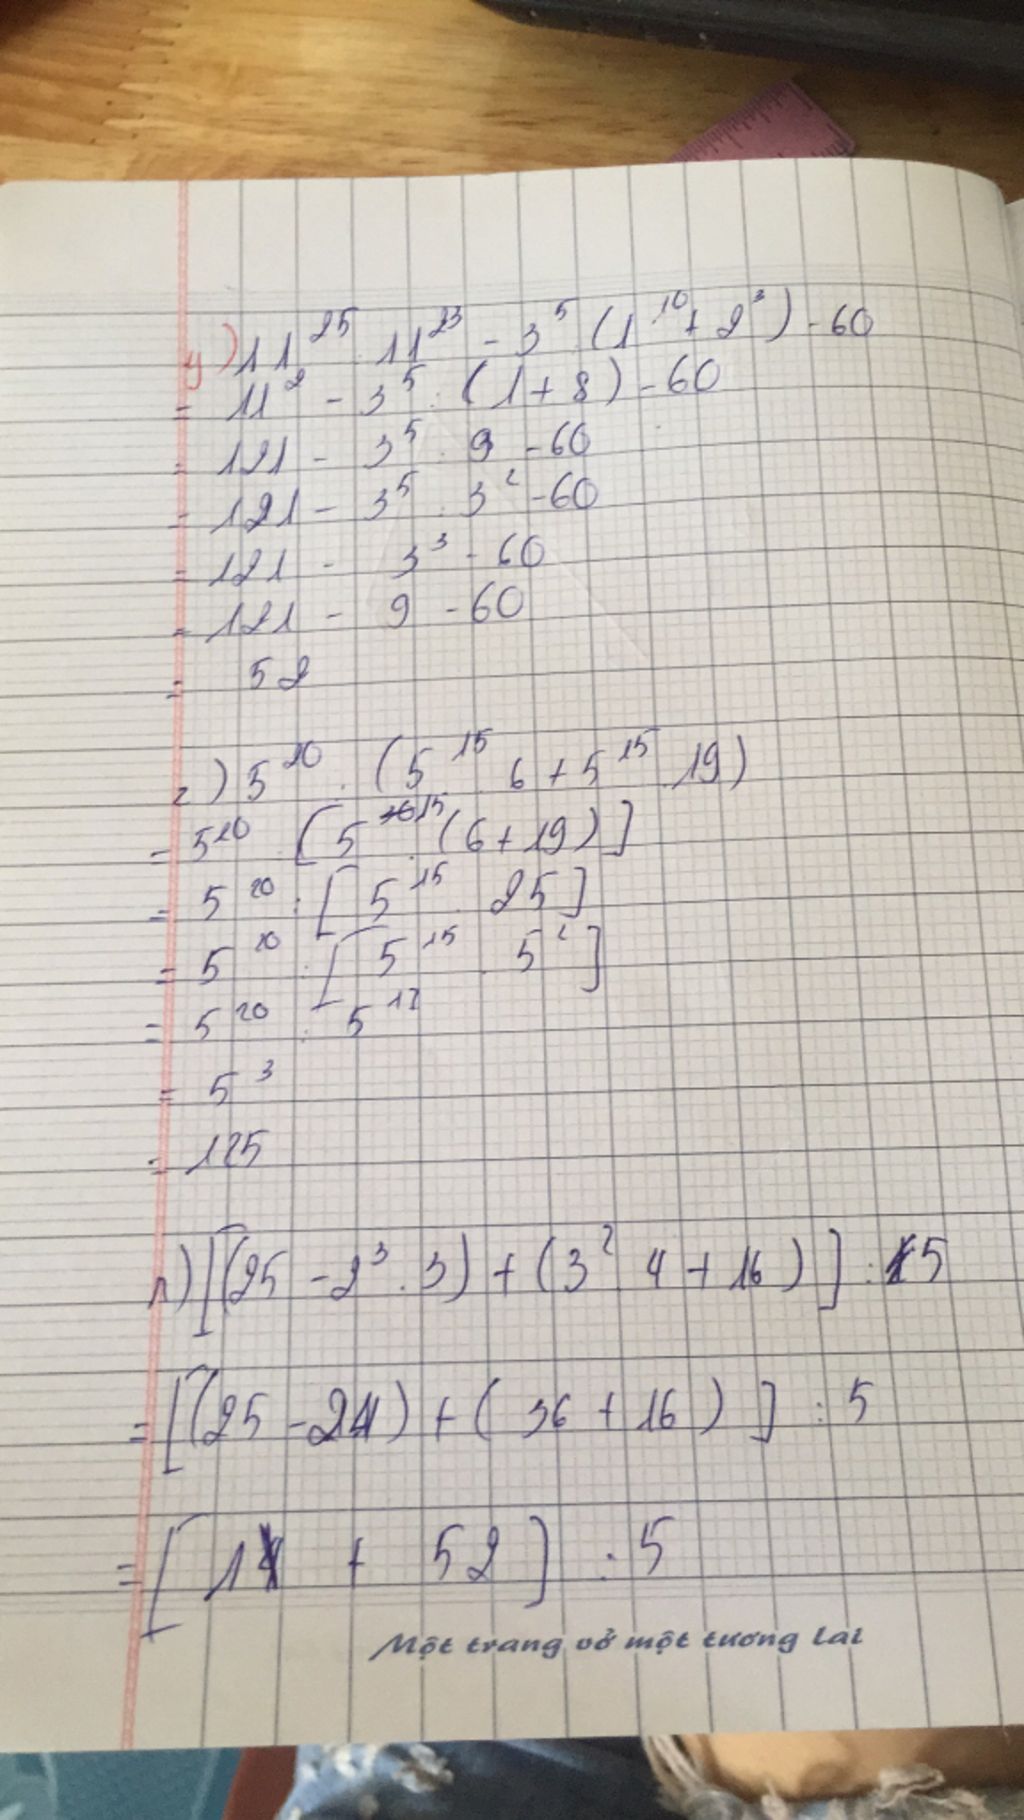 y) 11²⁵ : 11²³ - 3⁵ : (1¹⁰ + 2³) - 60
= 11² - 3⁵ : (1 + 8) - 60
= 121 - 3⁵ : 9 - 60
= 121 - 3⁵ : 3² - 60
= 121 - 3³ - 60
= 121 - 9 - 60
= 52
z) 5²⁰ : (5¹⁵ . 6 + 5¹⁵ . 19)
= 5²⁰ : [5¹⁵ . (6 + 19)]
= 5²⁰ : [5¹⁵ . 25]
= 5²⁰ : [5¹⁵ . 5²]
= 5²⁰ : 5¹⁷
= 5³
= 125
[(25 - 2³ . 3) + (3² . 4 + 16)] : 5
= [(25 - 24) + (36 + 16)] : 5
= [1 + 52] : 5
Một trang vở một tương lai